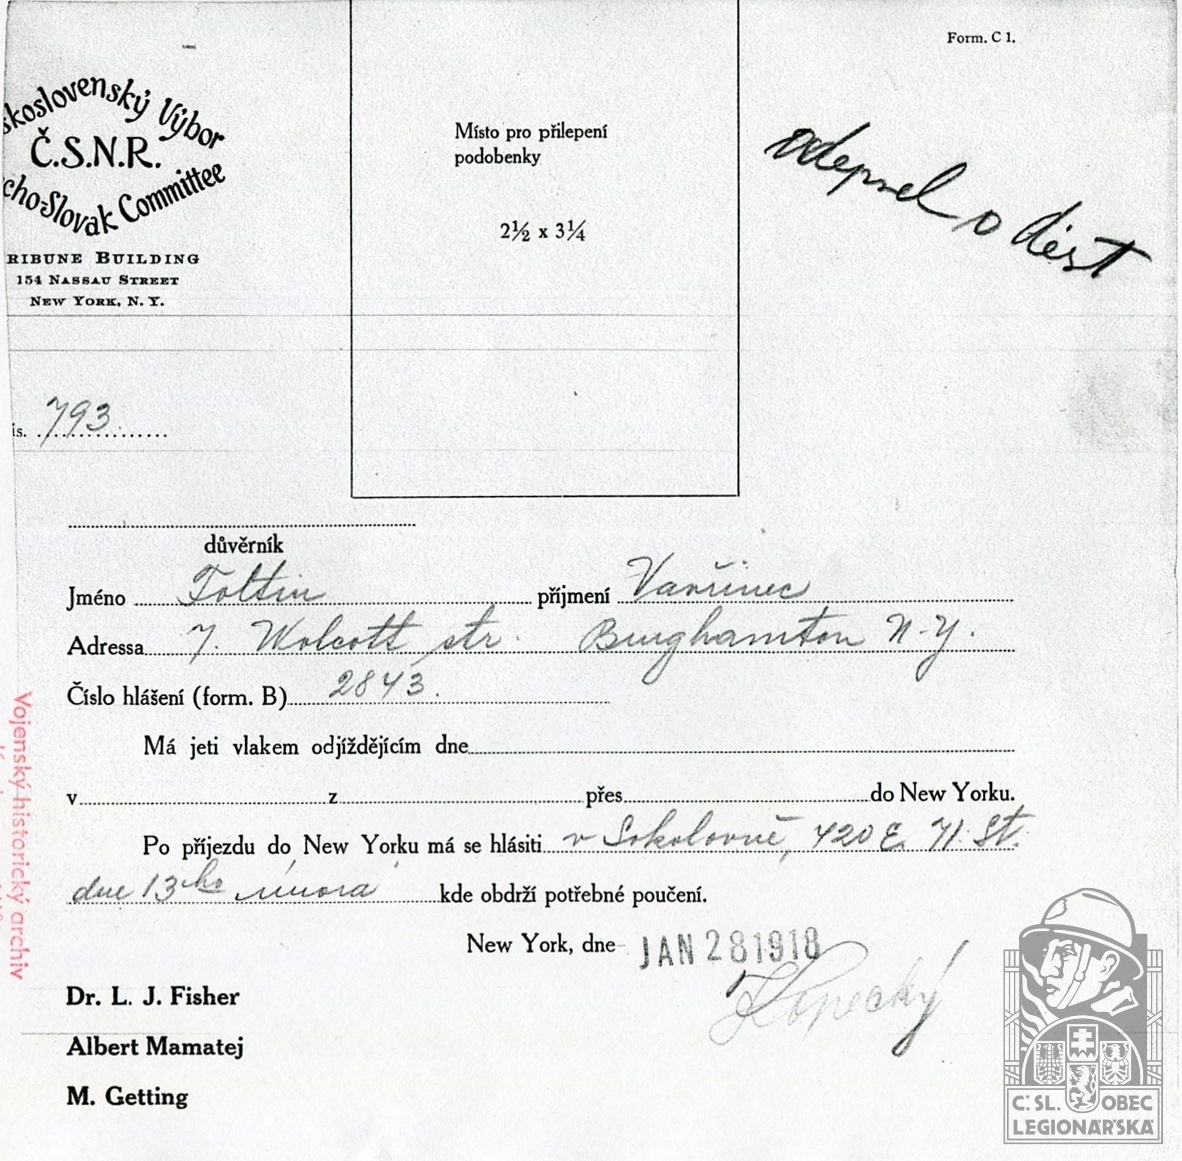 Form. C 1.
koslovenský Výbor
Č.S.N.R.
cho-Slovak Committee
RIBUNE BUILDING
154 NASSAU STREET
NEW YORK, N. Y.
Místo pro přilepení
podobenky
2½ x 3¼
odepsel o dést
is. 793
důvěrník
Jméno Toltin příjmení Vavřinec
Adressa 7. Wolcott str. Binghamton N-Y.
Číslo hlášení (form. B) 2843.
Má jeti vlakem odjíždějícím dne
v z přes do New Yorku.
Po příjezdu do New Yorku má se hlásiti v Sokolovně, 420 E. 71. St.
dne 13ho února kde obdrží potřebné poučení.
New York, dne JAN 28 1918
Kopecký
Dr. L. J. Fisher
Albert Mamatej
M. Getting
Vojenský historický archiv
Č. SL. OBEC
LEGIONÁŘSKÁ